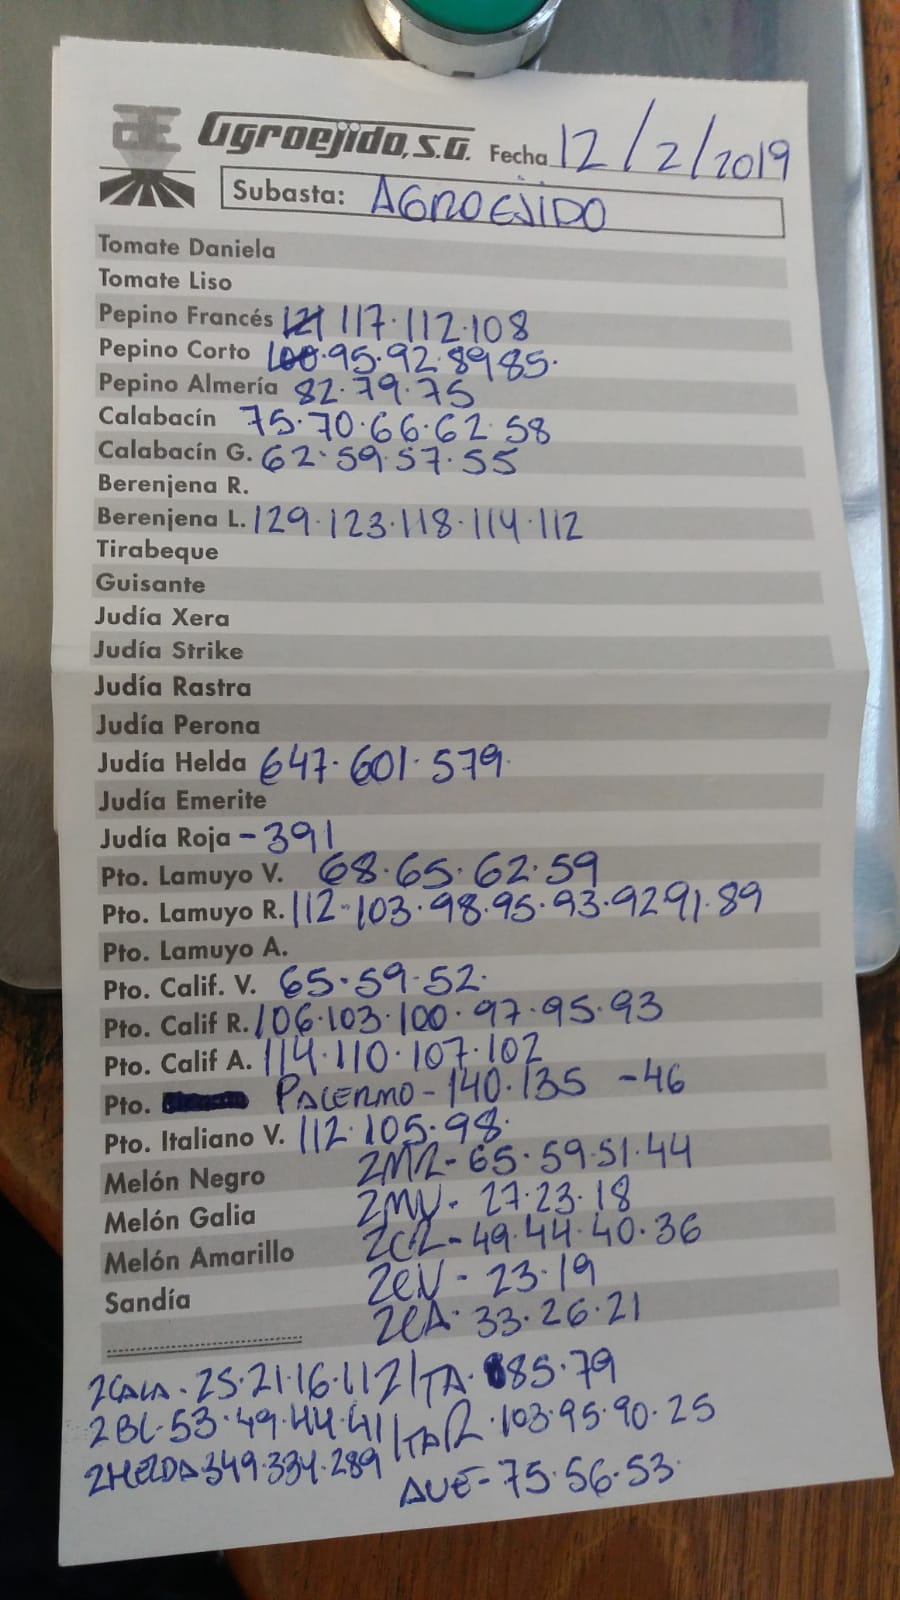 Agroejido, S.A. Fecha 12/2/2019
Subasta: AGROEJIDO
Tomate Daniela
Tomate Liso
Pepino Francés 121 117·112·108
Pepino Corto 100·95·92·89·85·
Pepino Almería 82·79·75
Calabacín 75·70·66·62·58
Calabacín G. 62·59·57·55
Berenjena R.
Berenjena L. 129·123·118·114·112
Tirabeque
Guisante
Judía Xera
Judía Strike
Judía Rastra
Judía Perona
Judía Helda 647·601·579·
Judía Emerite
Judía Roja - 391
Pto. Lamuyo V. 68·65·62·59
Pto. Lamuyo R. 112·103·98·95·93·92 91·89
Pto. Lamuyo A.
Pto. Calif. V. 65·59·52·
Pto. Calif R. 106·103·100·97·95·93
Pto. Calif A. 114·110·107·102
Pto. PALERMO - 140·135 -46
Pto. Italiano V. 112·105·98·
Melón Negro 2MR- 65·59·51·44
Melón Galia 2MV- 27·23·18
Melón Amarillo 2CR- 49·44·40·36
Sandía 2CV - 23·19
2CA· 33·26·21
2CALA - 25·21·16· 112 / TA· 85·79
2BL· 53·49·44·41 / TAR· 103·95·90·25
2HELDA 349·334·289
AVE- 75·56·53·